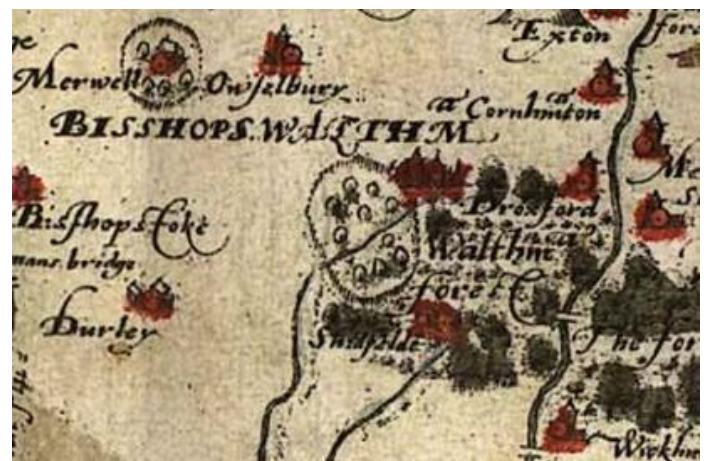 Exton
Merwell
Owselbury
Cornhmton
BISSHOPS.WALTHM
Bisshops Toke
mans. bridge
Droxford
Walthm
Forest
Durley
The for
Wickhm